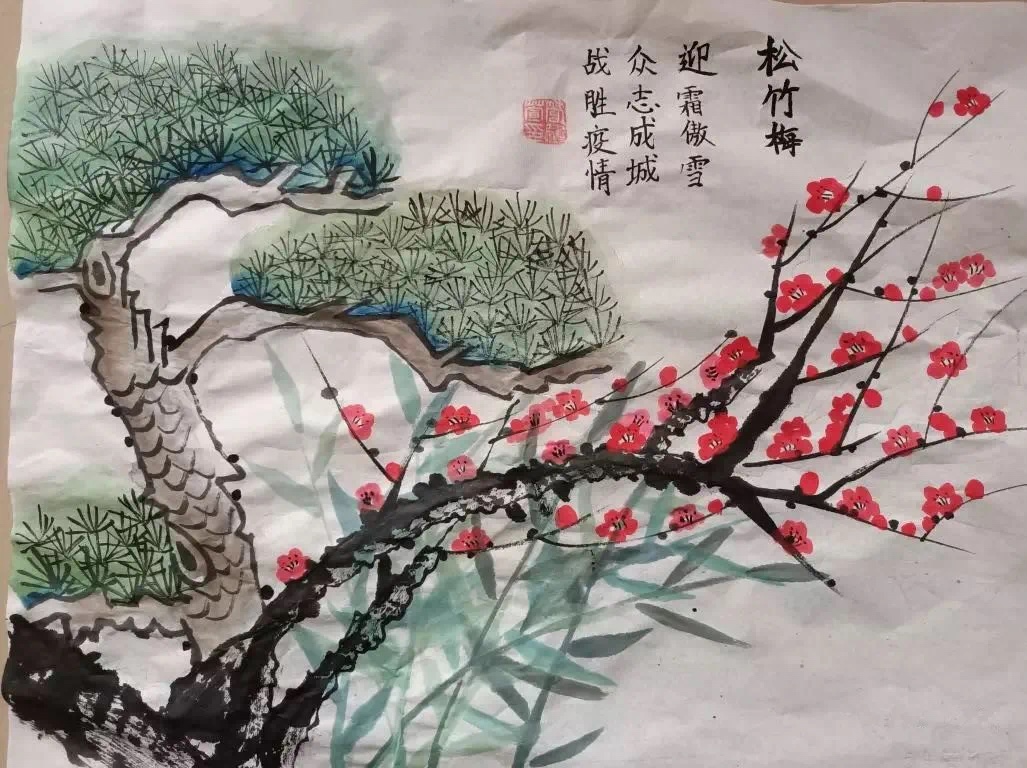 松竹梅
迎霜傲雪
众志成城
战胜疫情